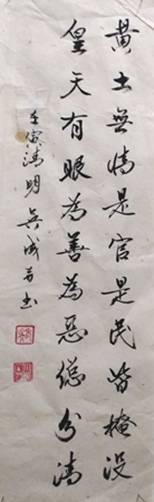 黃土無情是官是民皆掩没
皇天有眼為善為惡總分清
壬寅清明吳成芳书